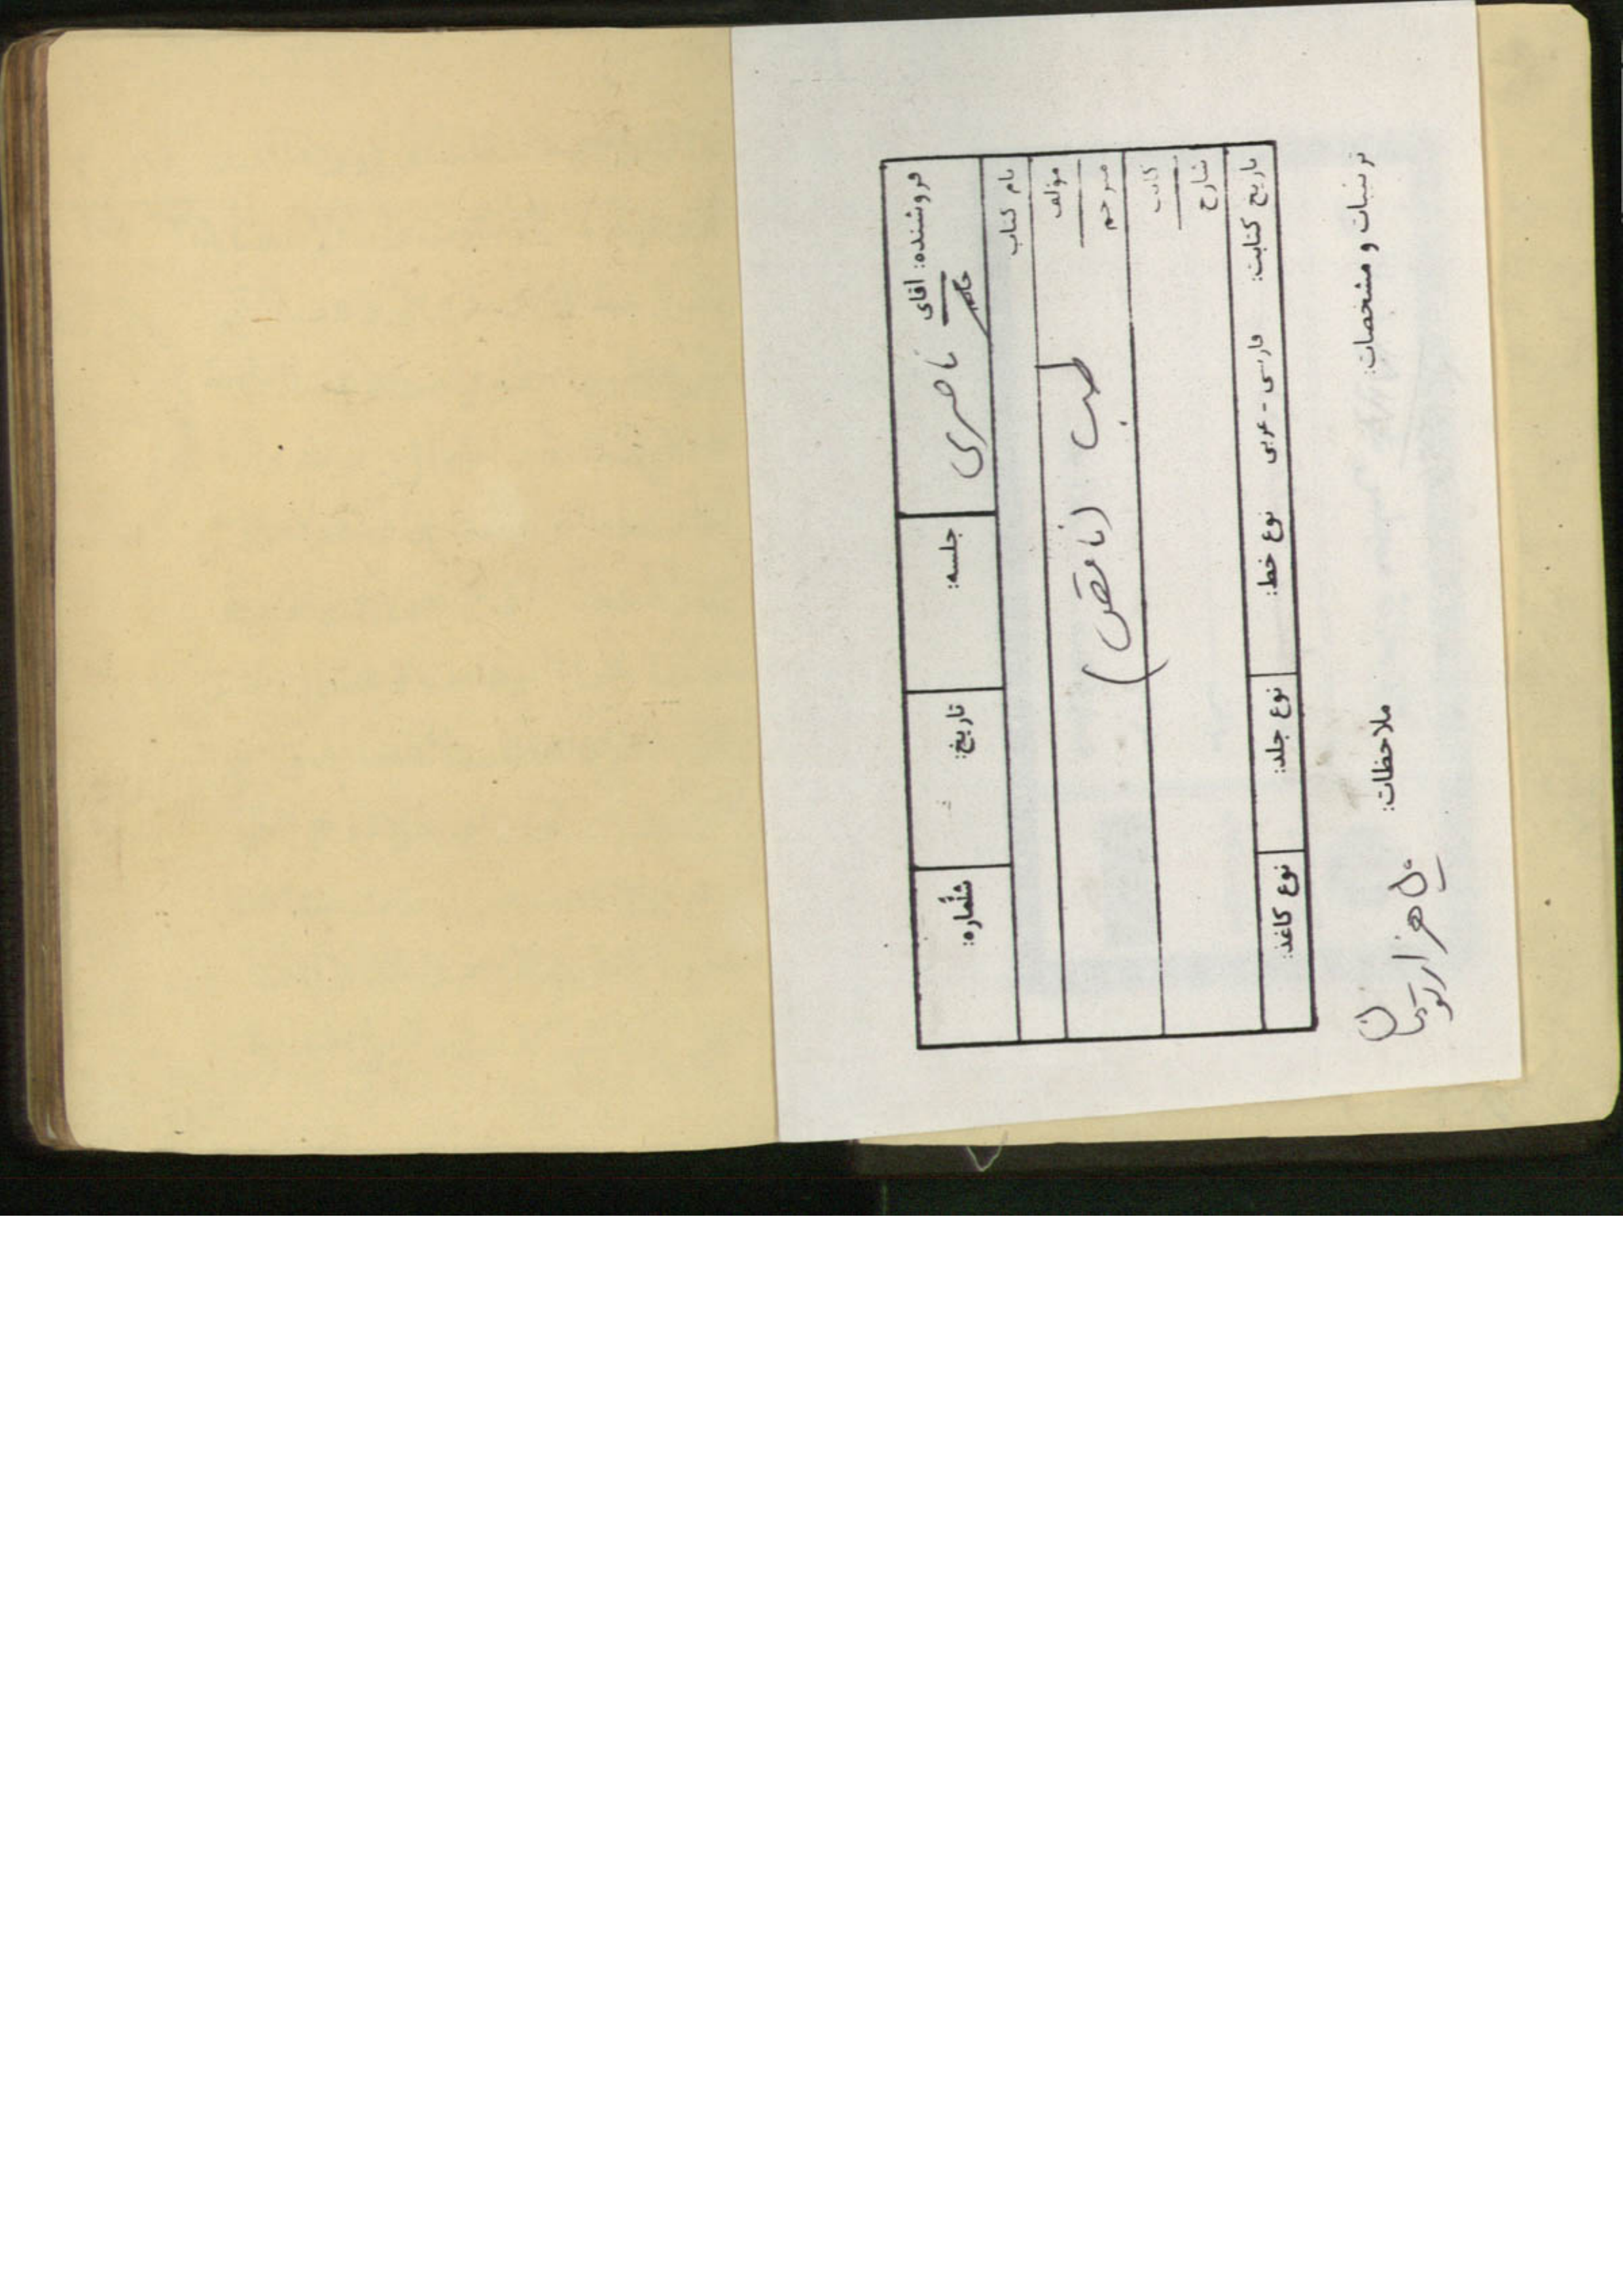 فروشنده: آقای / خانم ناصری جلسه: تاریخ: شماره:
نام کتاب
مؤلف
طب (ناقص)
مترجم
کاتب
شارح
تاریخ کتابت: فارسی - عربی نوع خط: نوع جلد: نوع کاغذ:
تزئینات و مشخصات:
ملاحظات:
هزار تومان